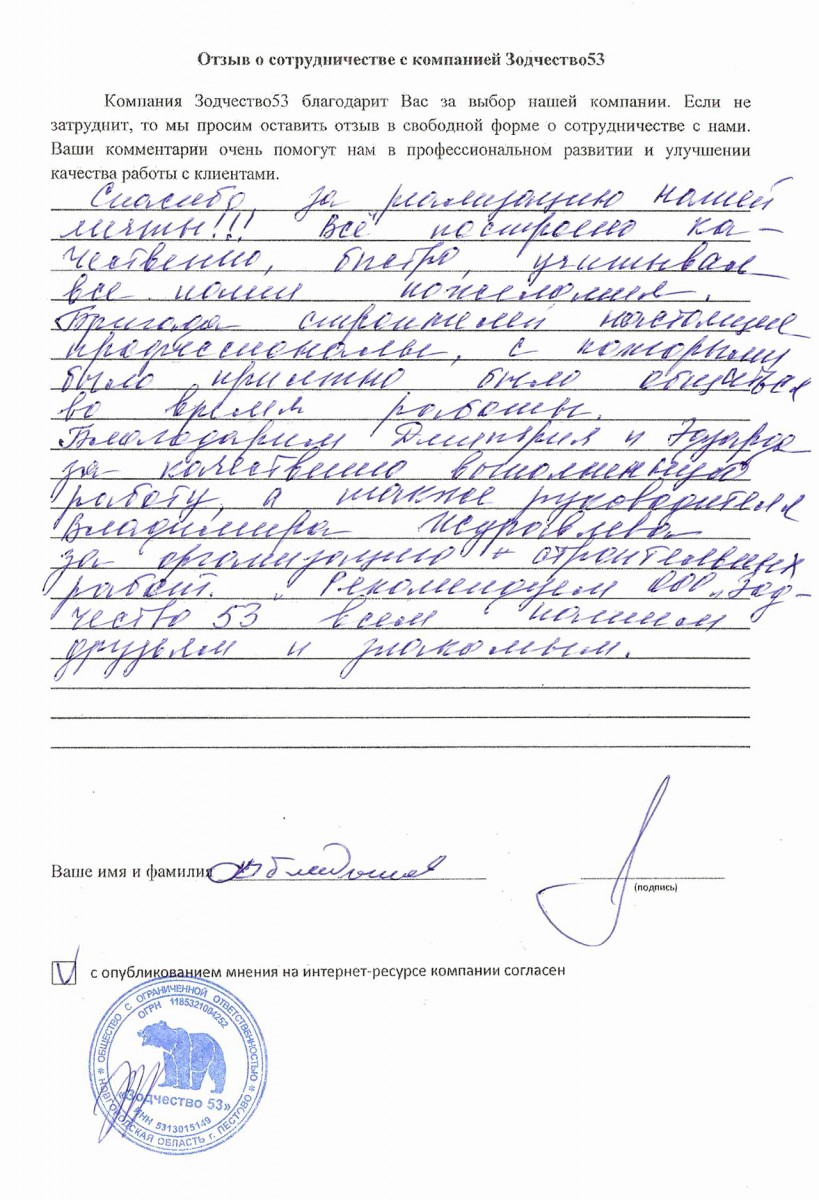 Отзыв о сотрудничестве с компанией Зодчество53
Компания Зодчество53 благодарит Вас за выбор нашей компании. Если не
затруднит, то мы просим оставить отзыв в свободной форме о сотрудничестве с нами.
Ваши комментарии очень помогут нам в профессиональном развитии и улучшении
качества работы с клиентами.
Спасибо, за реализацию нашей
мечты!!! Всё построено ка-
чественно, быстро, учитывая
все наши пожелания.
Бригада строителей настоящие
профессионалы, с которыми
было приятно было общаться
во время работы.
Благодарим Дмитрия и Эдуарда
за качественно выполненную
работу, а также руководителя
Владимира Журавлева
за организацию строительных
работ. Рекомендуем ООО „Зод-
чество 53 всем нашим
друзьям и знакомым.
Ваше имя и фамилия
(подпись)
V с опубликованием мнения на интернет-ресурсе компании согласен
ОБЩЕСТВО С ОГРАНИЧЕННОЙ ОТВЕТСТВЕННОСТЬЮ
ОГРН 1185321004252
«Зодчество 53»
ИНН 5313015149
НОВГОРОДСКАЯ ОБЛАСТЬ г. ПЕСТОВО